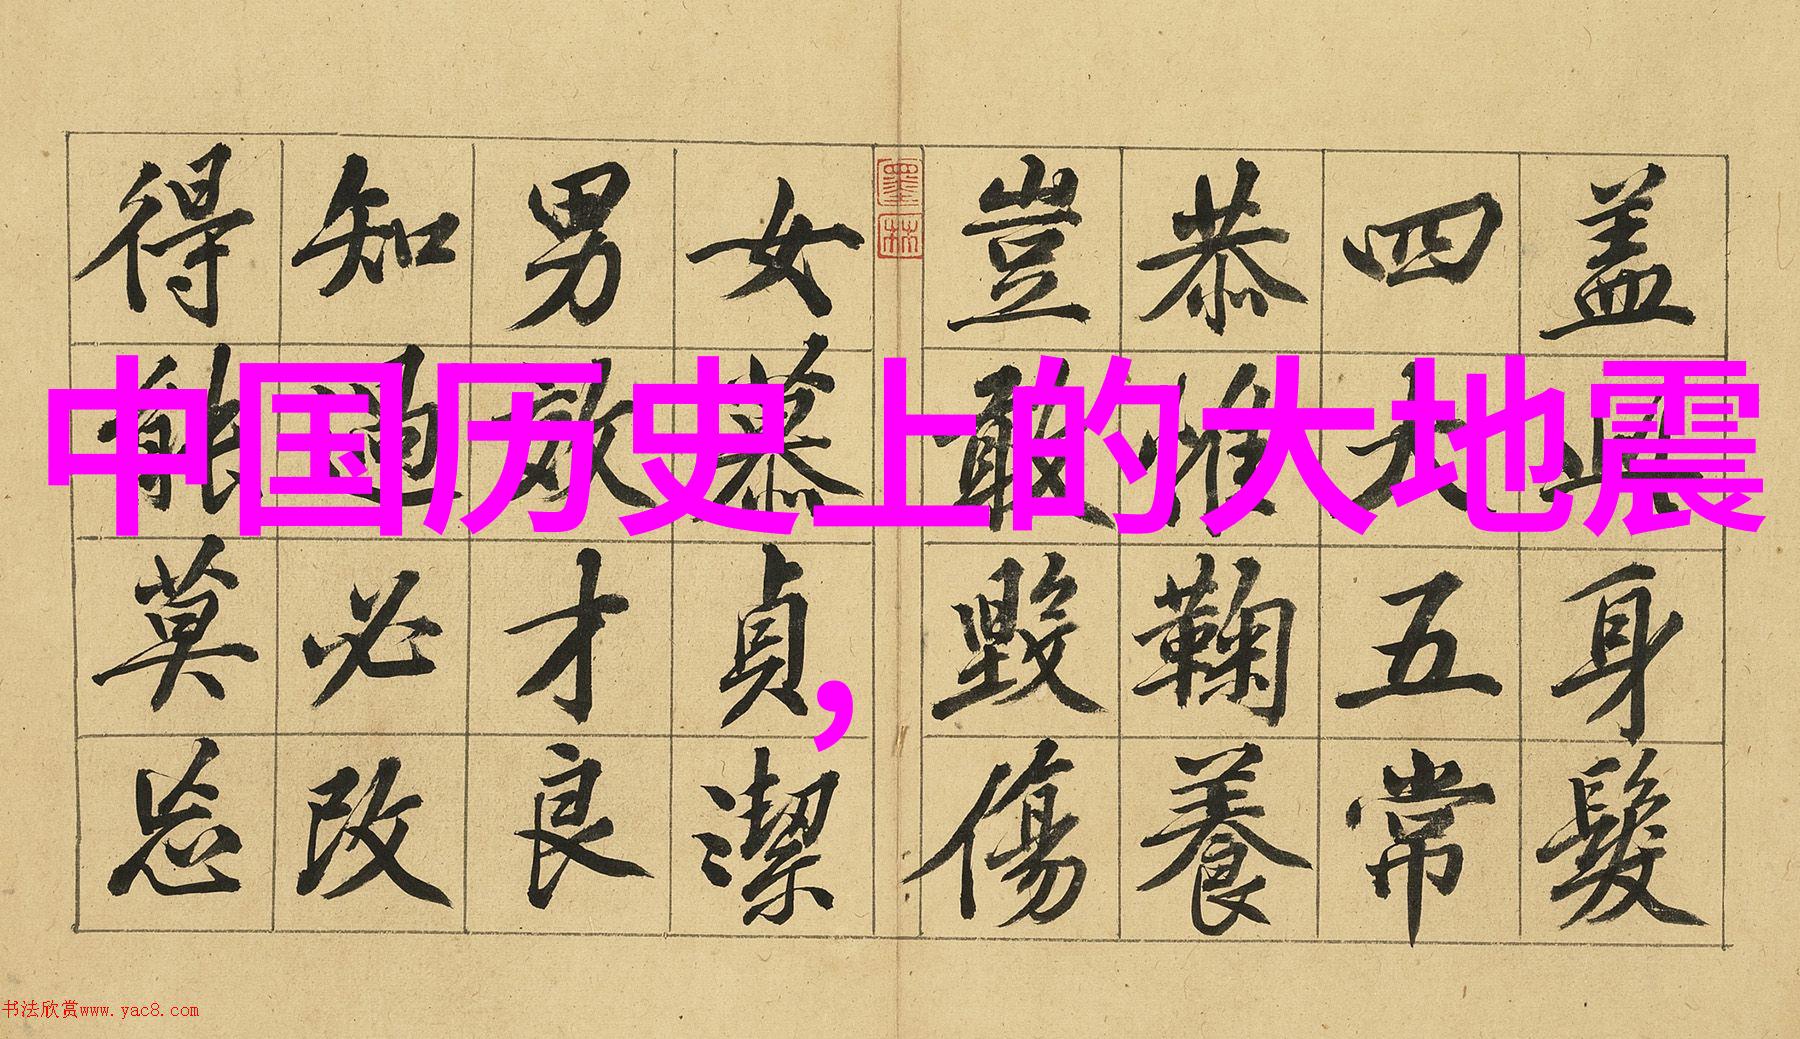 中国历史上的大地震
，
盖此身髮
四大五常
恭惟鞠養
豈敢毀傷
墨林
女慕貞潔
男效才良
知過必改
得能莫忘
书法欣赏www.yac8.com